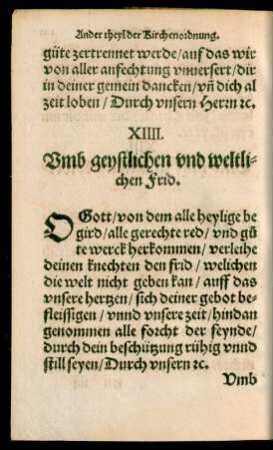 Ander theyl der Kirchenordnung.
güte zertrennet werde/auf das wir
von aller anfechtung vnuersert/dir
in deiner gemein dancken/vñ dich al
zeit loben/Durch vnsern Herrn ꝛc.
XIIII.
Vmb geystlichen vnd weltli-
chen Frid.
O Gott/von dem alle heylige be
gird/alle gerechte red/vnd gů
te werck herkommen/verleihe
deinen knechten den frid/welichen
die welt nicht geben kan/auff das
vnsere hertzen/sich deiner gebot be-
fleissigen/vnnd vnsere zeit/hindan
genommen alle forcht der feynde/
durch dein beschützung rühig vnnd
still seyen/Durch vnsern ꝛc.
Vmb